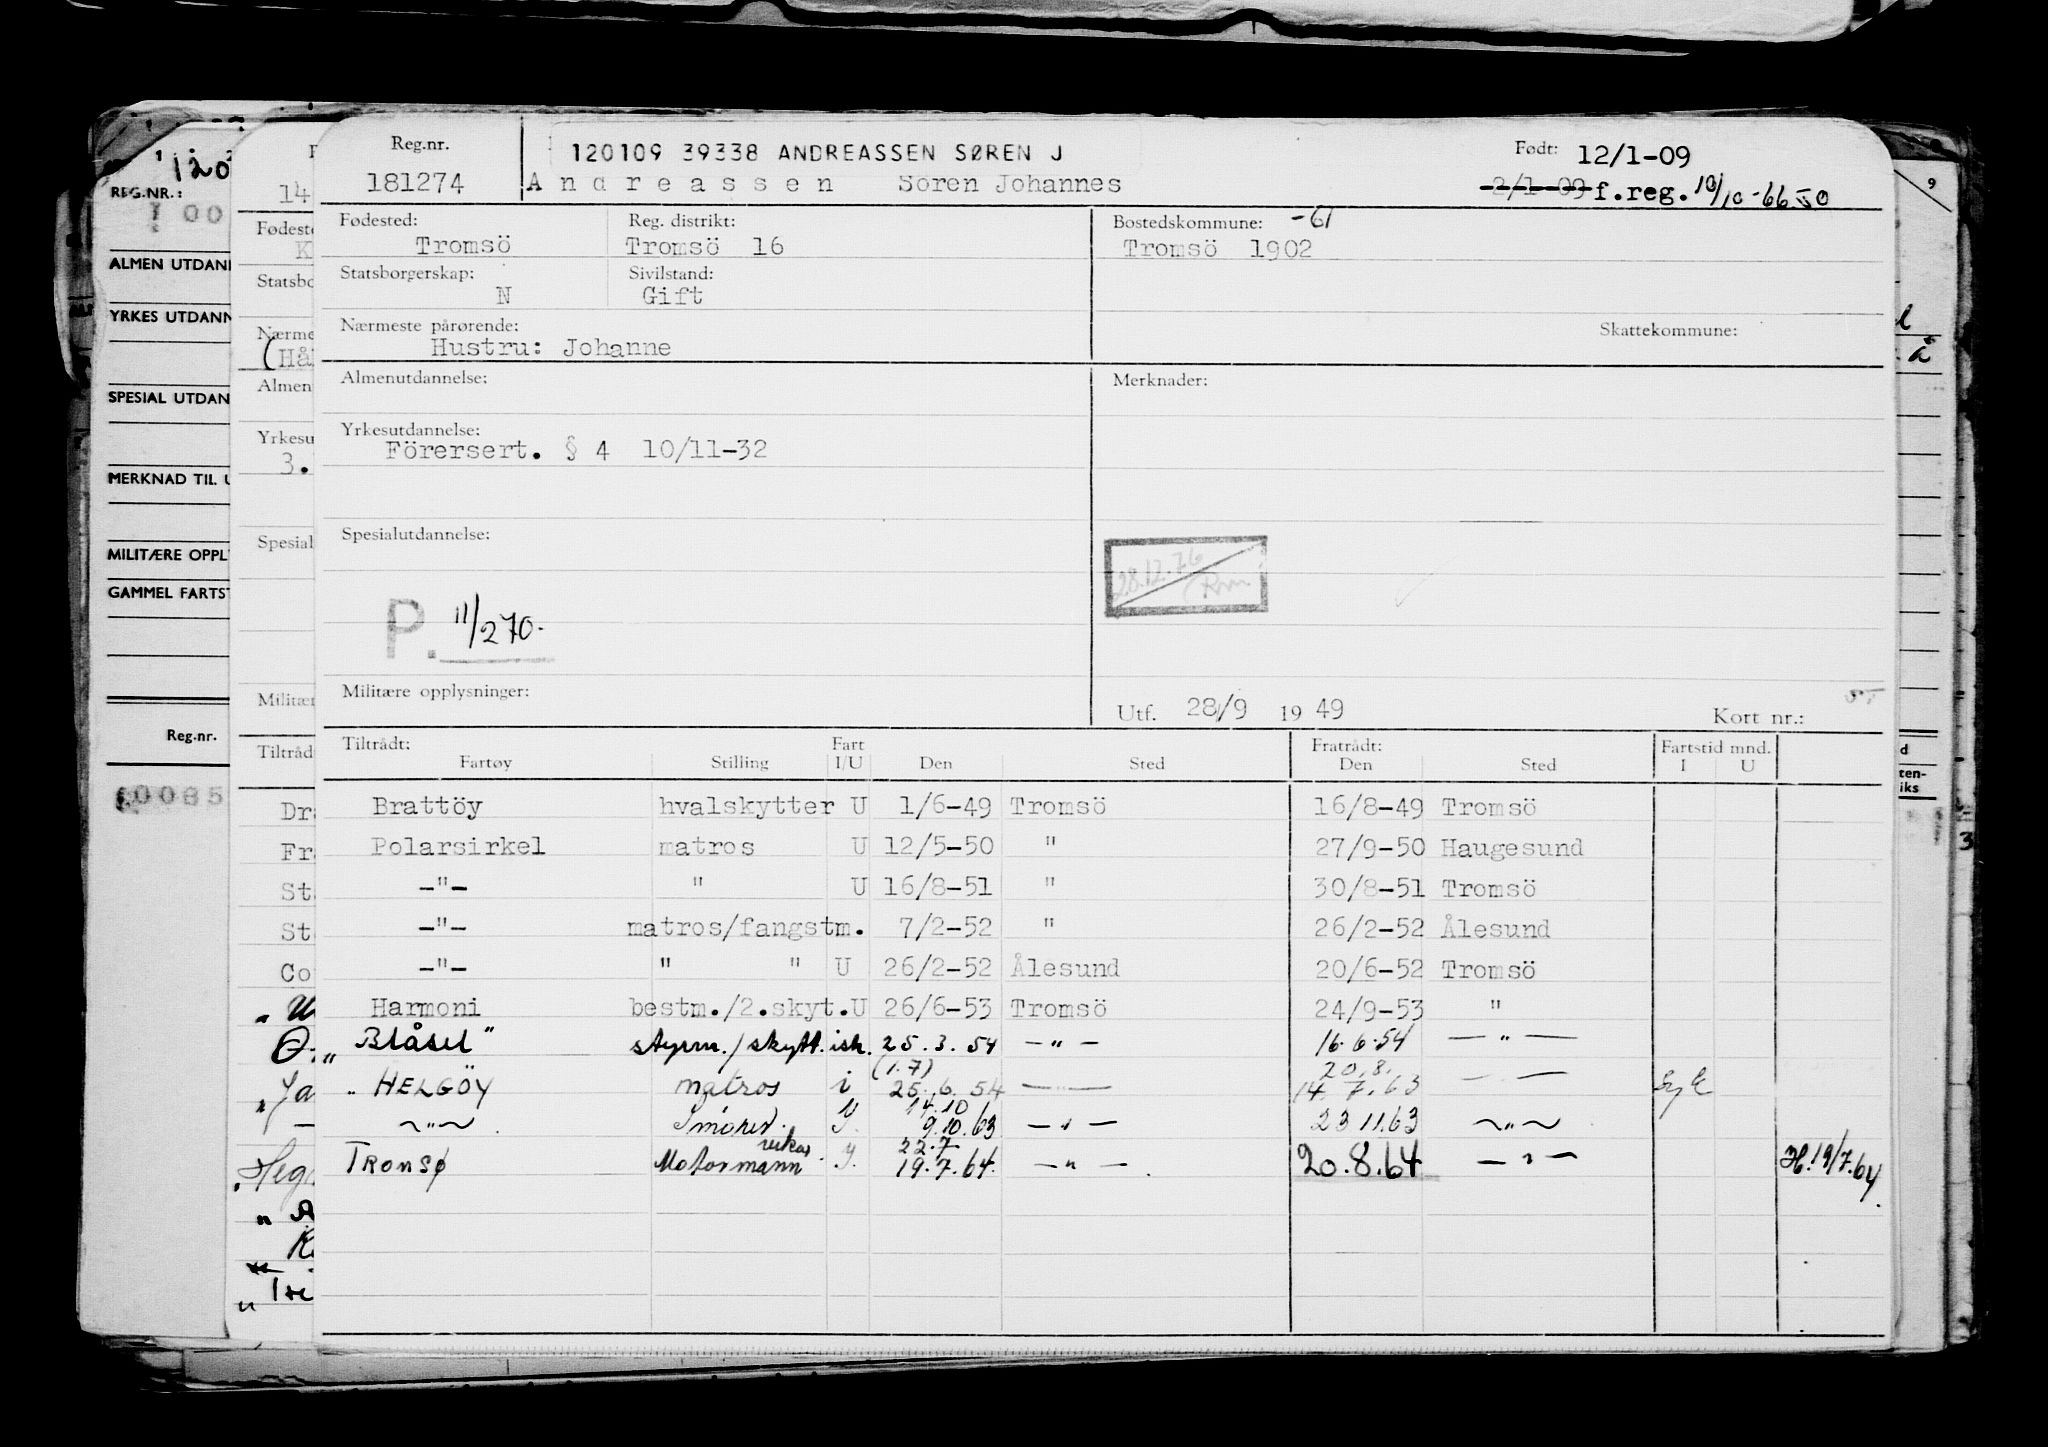 Reg.nr.
120109 39338 ANDREASSEN SØREN J
Født: 12/1-09
181274
Andreassen Sören Johannes
2/1-09 f.reg. 10/10-66
Fødested: Reg. distrikt: Bostedskommune: -61
Tromsö Tromsö 16 Tromsö 1902
Statsborgerskap: Sivilstand:
N Gift
Nærmeste pårørende: Skattekommune:
Hustru: Johanne
Almenutdannelse: Merknader:
Yrkesutdannelse:
Förersert. § 4 10/11-32
Spesialutdannelse:
28.12.76
P. 11/270.
Militære opplysninger:
Utf. 28/9 19 49 Kort nr.:
Tiltrådt: Fart Fratrådt: Fartstid mnd.
Fartøy Stilling I/U Den Sted Den Sted I U
Brattöy hvalskytter U 1/6-49 Tromsö 16/8-49 Tromsö
Polarsirkel matros U 12/5-50 " 27/9-50 Haugesund
-"- " U 16/8-51 " 30/8-51 Tromsö
-"- matros/fangstm. 7/2-52 " 26/2-52 Ålesund
-"- " " U 26/2-52 Ålesund 20/6-52 Tromsö
Harmoni bestm./2.skyt. U 26/6-53 Tromsö 24/9-53 "
„Blåsel" styrm./skytt. ish. 25.3.54 -"- 16.6.54 -"-
(1.7) 20.8.
" HELGÖY matros i 25.6.54 14.7.63
14.10
-"- 9.10.63 -"- 23 11.63 -"-
vikar 22.7
TROMSØ Motormann 19.7.64. -"- 20.8.64 -"- H.19/7.64.
REG.NR.:
ALMEN UTDANN
YRKES UTDANN
SPESIAL UTDAN
MERKNAD TIL U
MILITÆRE OPPL
GAMMEL FARTST
Reg.nr.